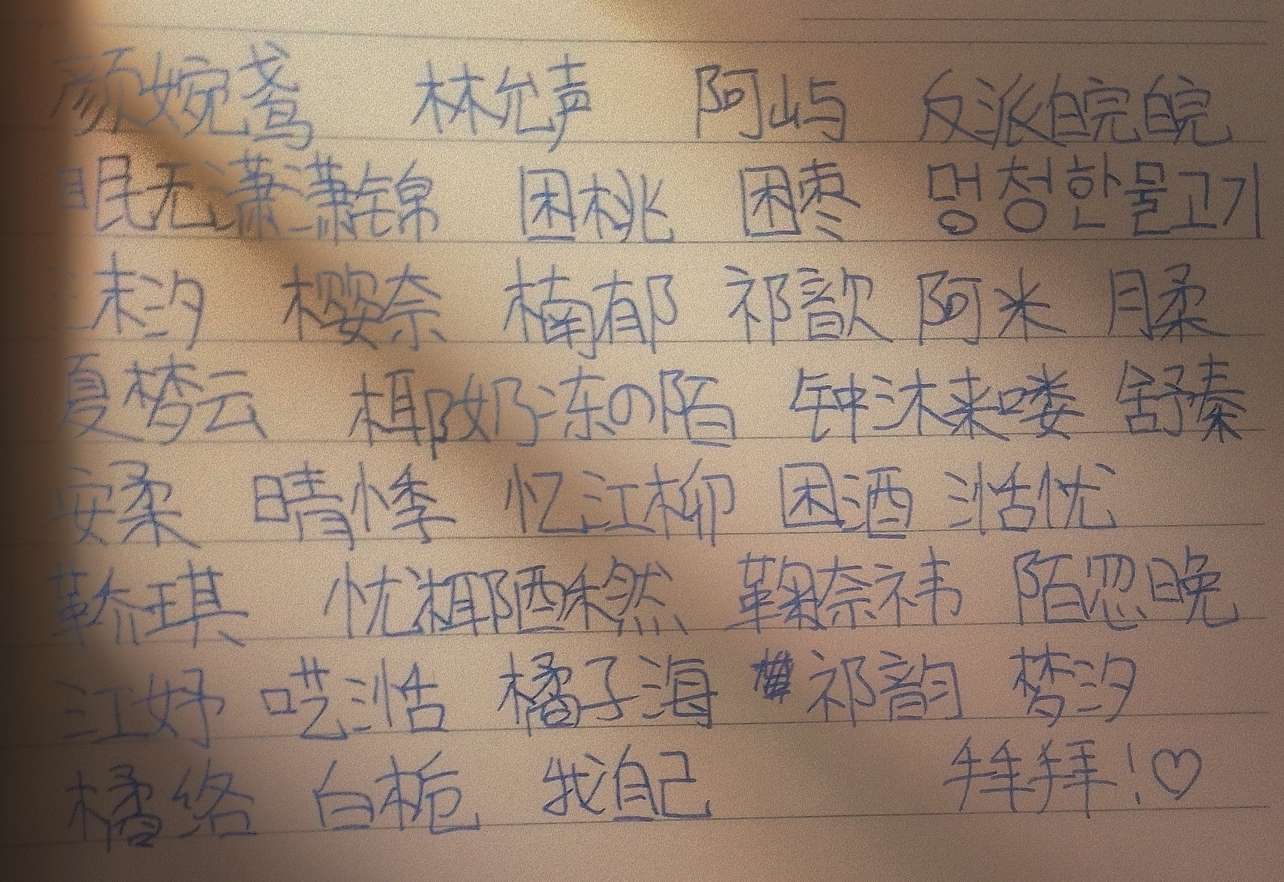 颜婉鸢 林允声 阿屿 反派皖皖
眠无潇潇锦 困桃 困枣 멍청한물고기
末汐 樱奈 楠郁 祁歆 阿米 月柔
夏梦云 椰奶冻の陌 钟沐来喽 舒秦
安柔 晴悸 忆江柳 困酒 湉忧
琪 忧椰陋然 鞠奈祎 陌忽晚
江妤 呓湉 橘子海 祁韵 梦汐
橘络 白栀 我自己 拜拜!♡